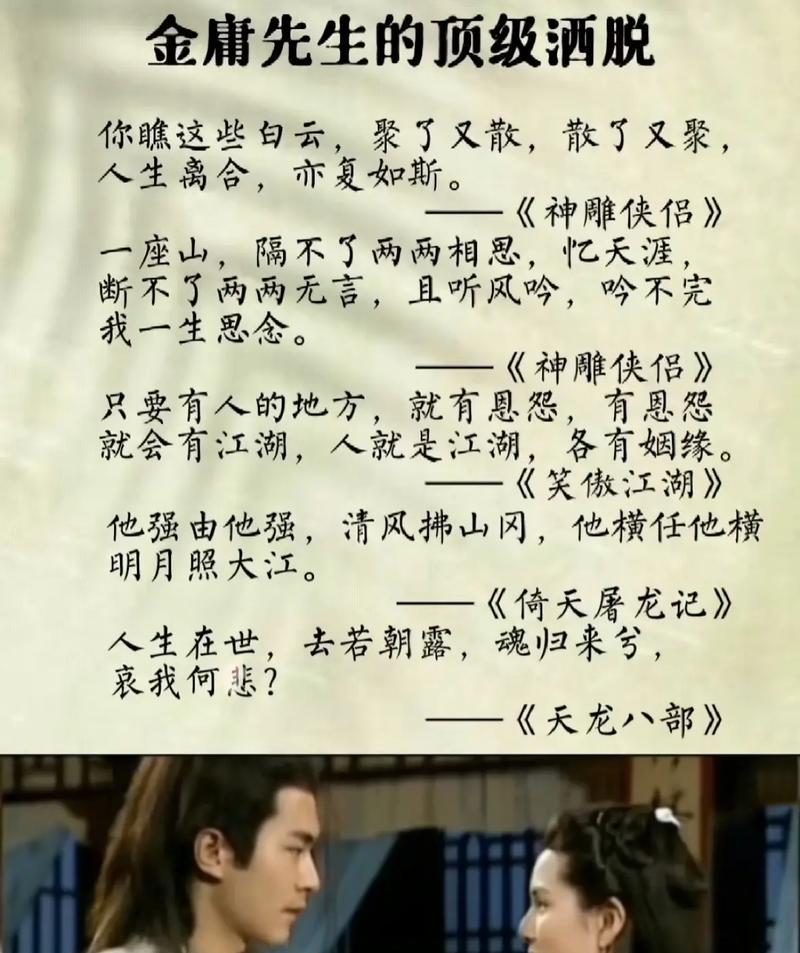 金庸先生的顶级洒脱
你瞧这些白云，聚了又散，散了又聚，
人生离合，亦复如斯。
——《神雕侠侣》
一座山，隔不了两两相思，忆天涯，
断不了两两无言，且听风吟，吟不完
我一生思念。
——《神雕侠侣》
只要有人的地方，就有恩怨，有恩怨
就会有江湖，人就是江湖，各有姻缘。
——《笑傲江湖》
他强由他强，清风拂山冈，他横任他横
明月照大江。
——《倚天屠龙记》
人生在世，去若朝露，魂归来兮，
哀我何悲？
——《天龙八部》